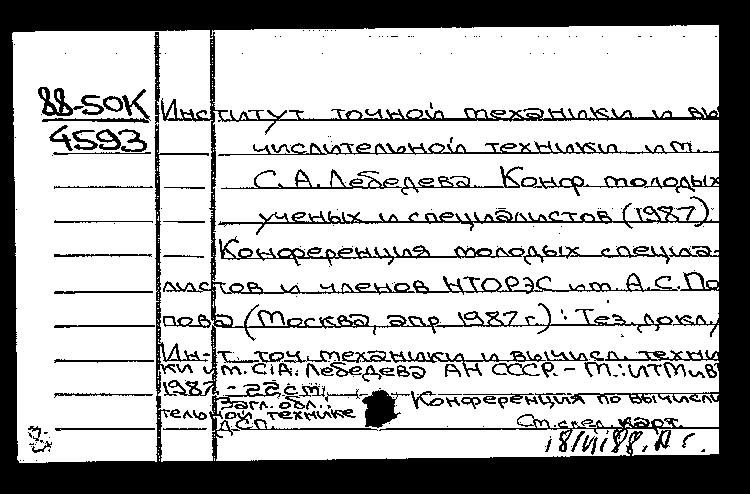 88-50К
4593
Институт точной механики и вы
числительной техники им.
С.А.Лебедева. Конф. молодых
ученых и специалистов (1987)
Конференция молодых специа-
листов и членов НТОРЭС им. А.С.По
пова (Москва, апр 1987 г.): Тез. докл./
Ин-т точ. механики и вычисл. техни
ки им. С.А. Лебедева АН СССР. - М.: ИТМиВ
1987. - 22 ст.
Загл. обл.: Конференция по вычисли
тельной технике
Д.С.П. См. след. карт.